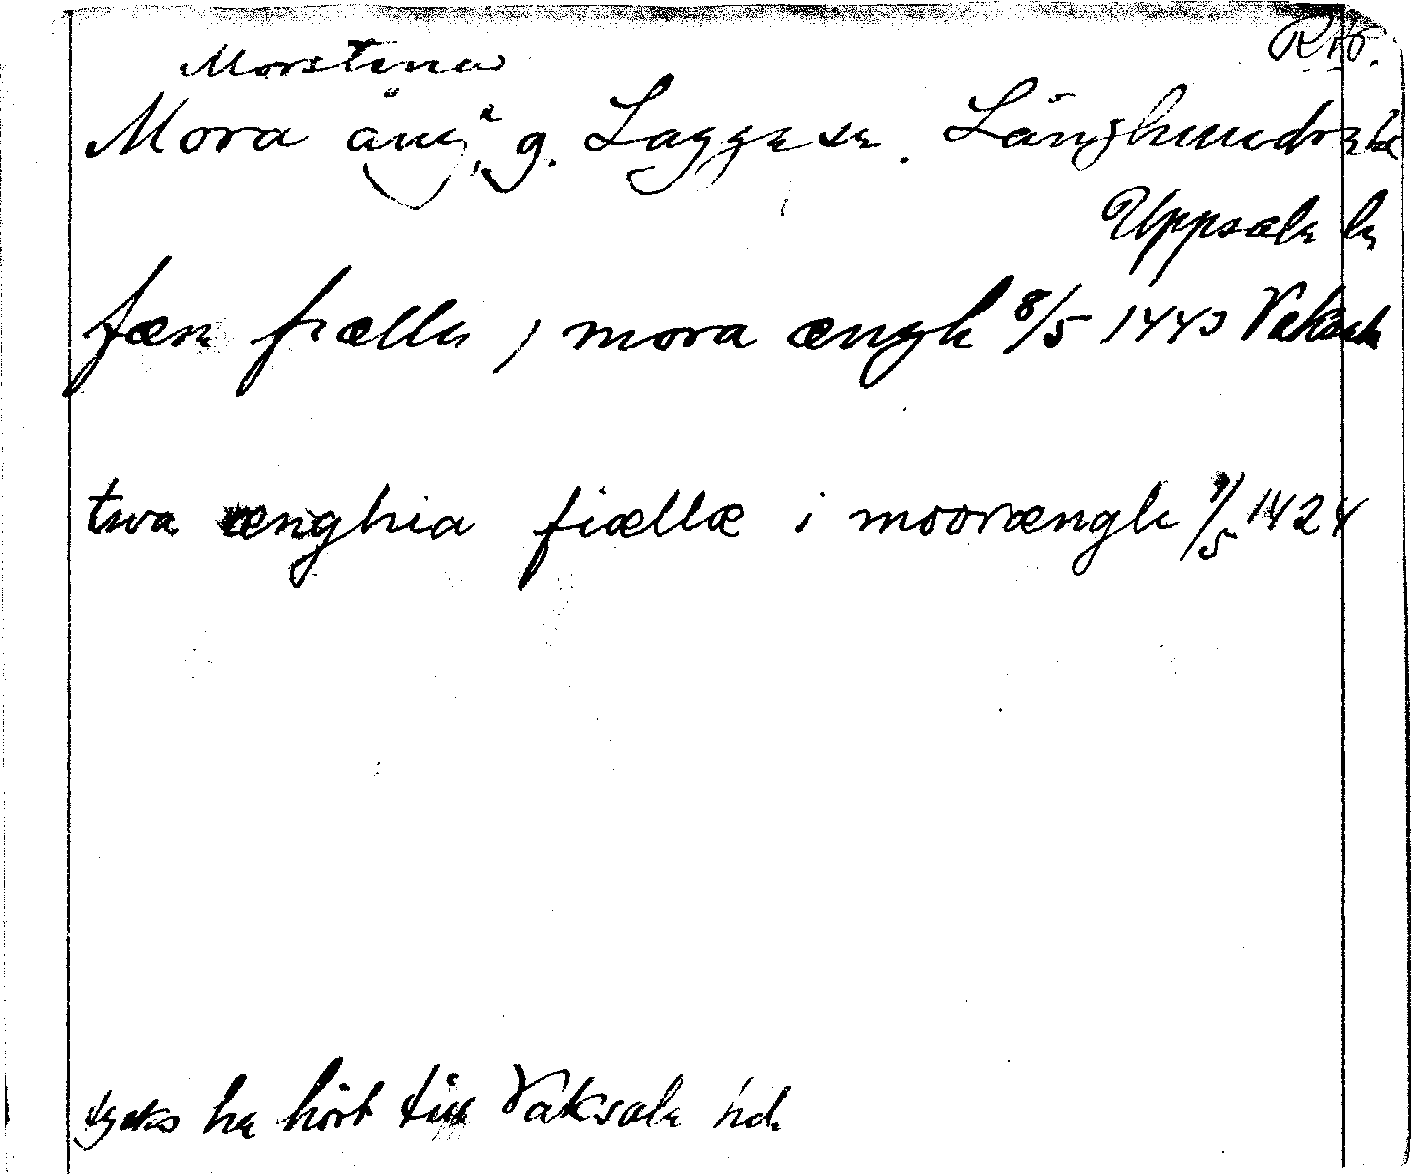 Mora äng, g. Lagga sn. Långhundra hd
Uppsala ln
fæm fiælla i mora ængh 8/5 1443 Vaksala
twa ænghia fiællæ i mooraængh 9/5 1424
tycks ha hört till Vaksala hd.